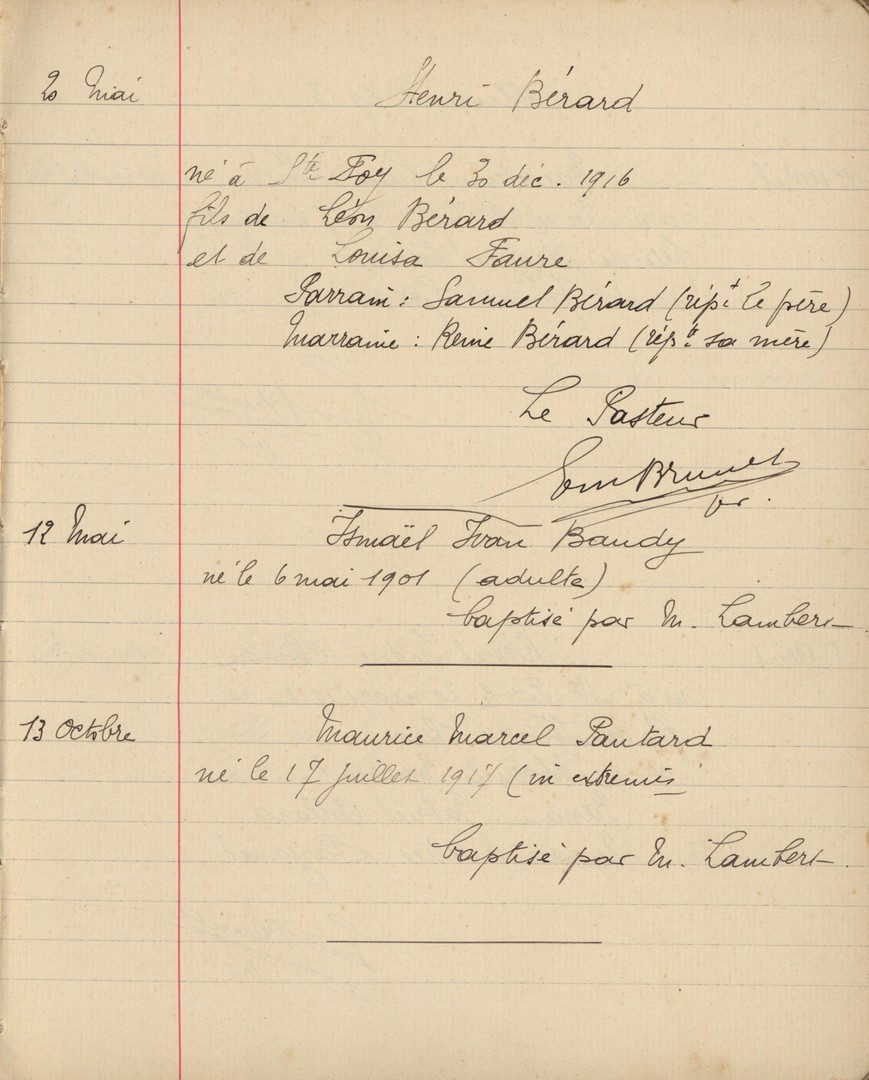 20 Mai Henri Bérard
né à Ste Foy le 30 déc. 1916
fils de Léon Bérard
et de Louisa Faure
Parrain : Samuel Bérard (rép.t le père)
Marraine : Reine Bérard (rép.t sa mère)
Le Pasteur
Em Brunet
pr.
12 Mai Ismaël Ivan Baudy
né le 6 mai 1901 (adulte)
baptisé par M. Lambert
13 Octobre Maurice Marcel Pautard
né le 17 juillet 1917 (in extremis
baptisé par M. Lambert.